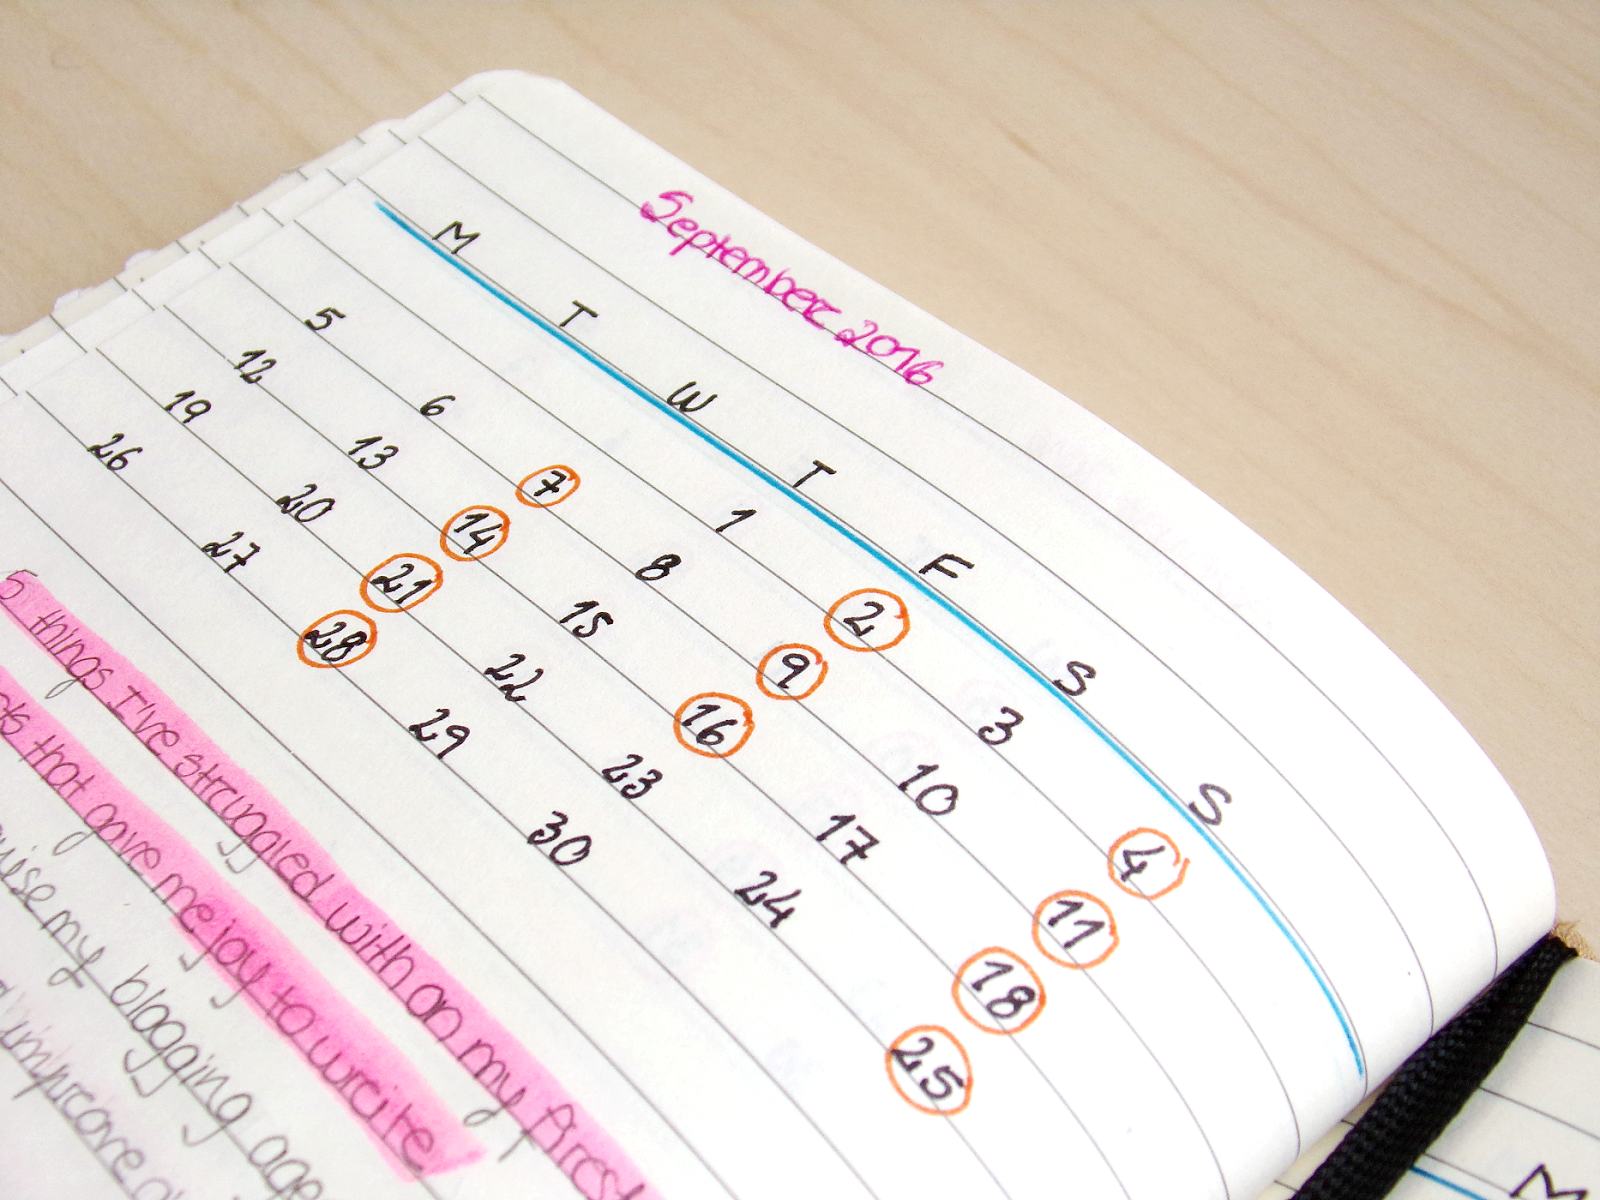 September 2016
M T W T F S S
1 2 3 4
5 6 7 8 9 10 11
12 13 14 15 16 17 18
19 20 21 22 23 24 25
26 27 28 29 30
5 things I've struggled with on my first
that gave me joy to write
my blogging
improve
M